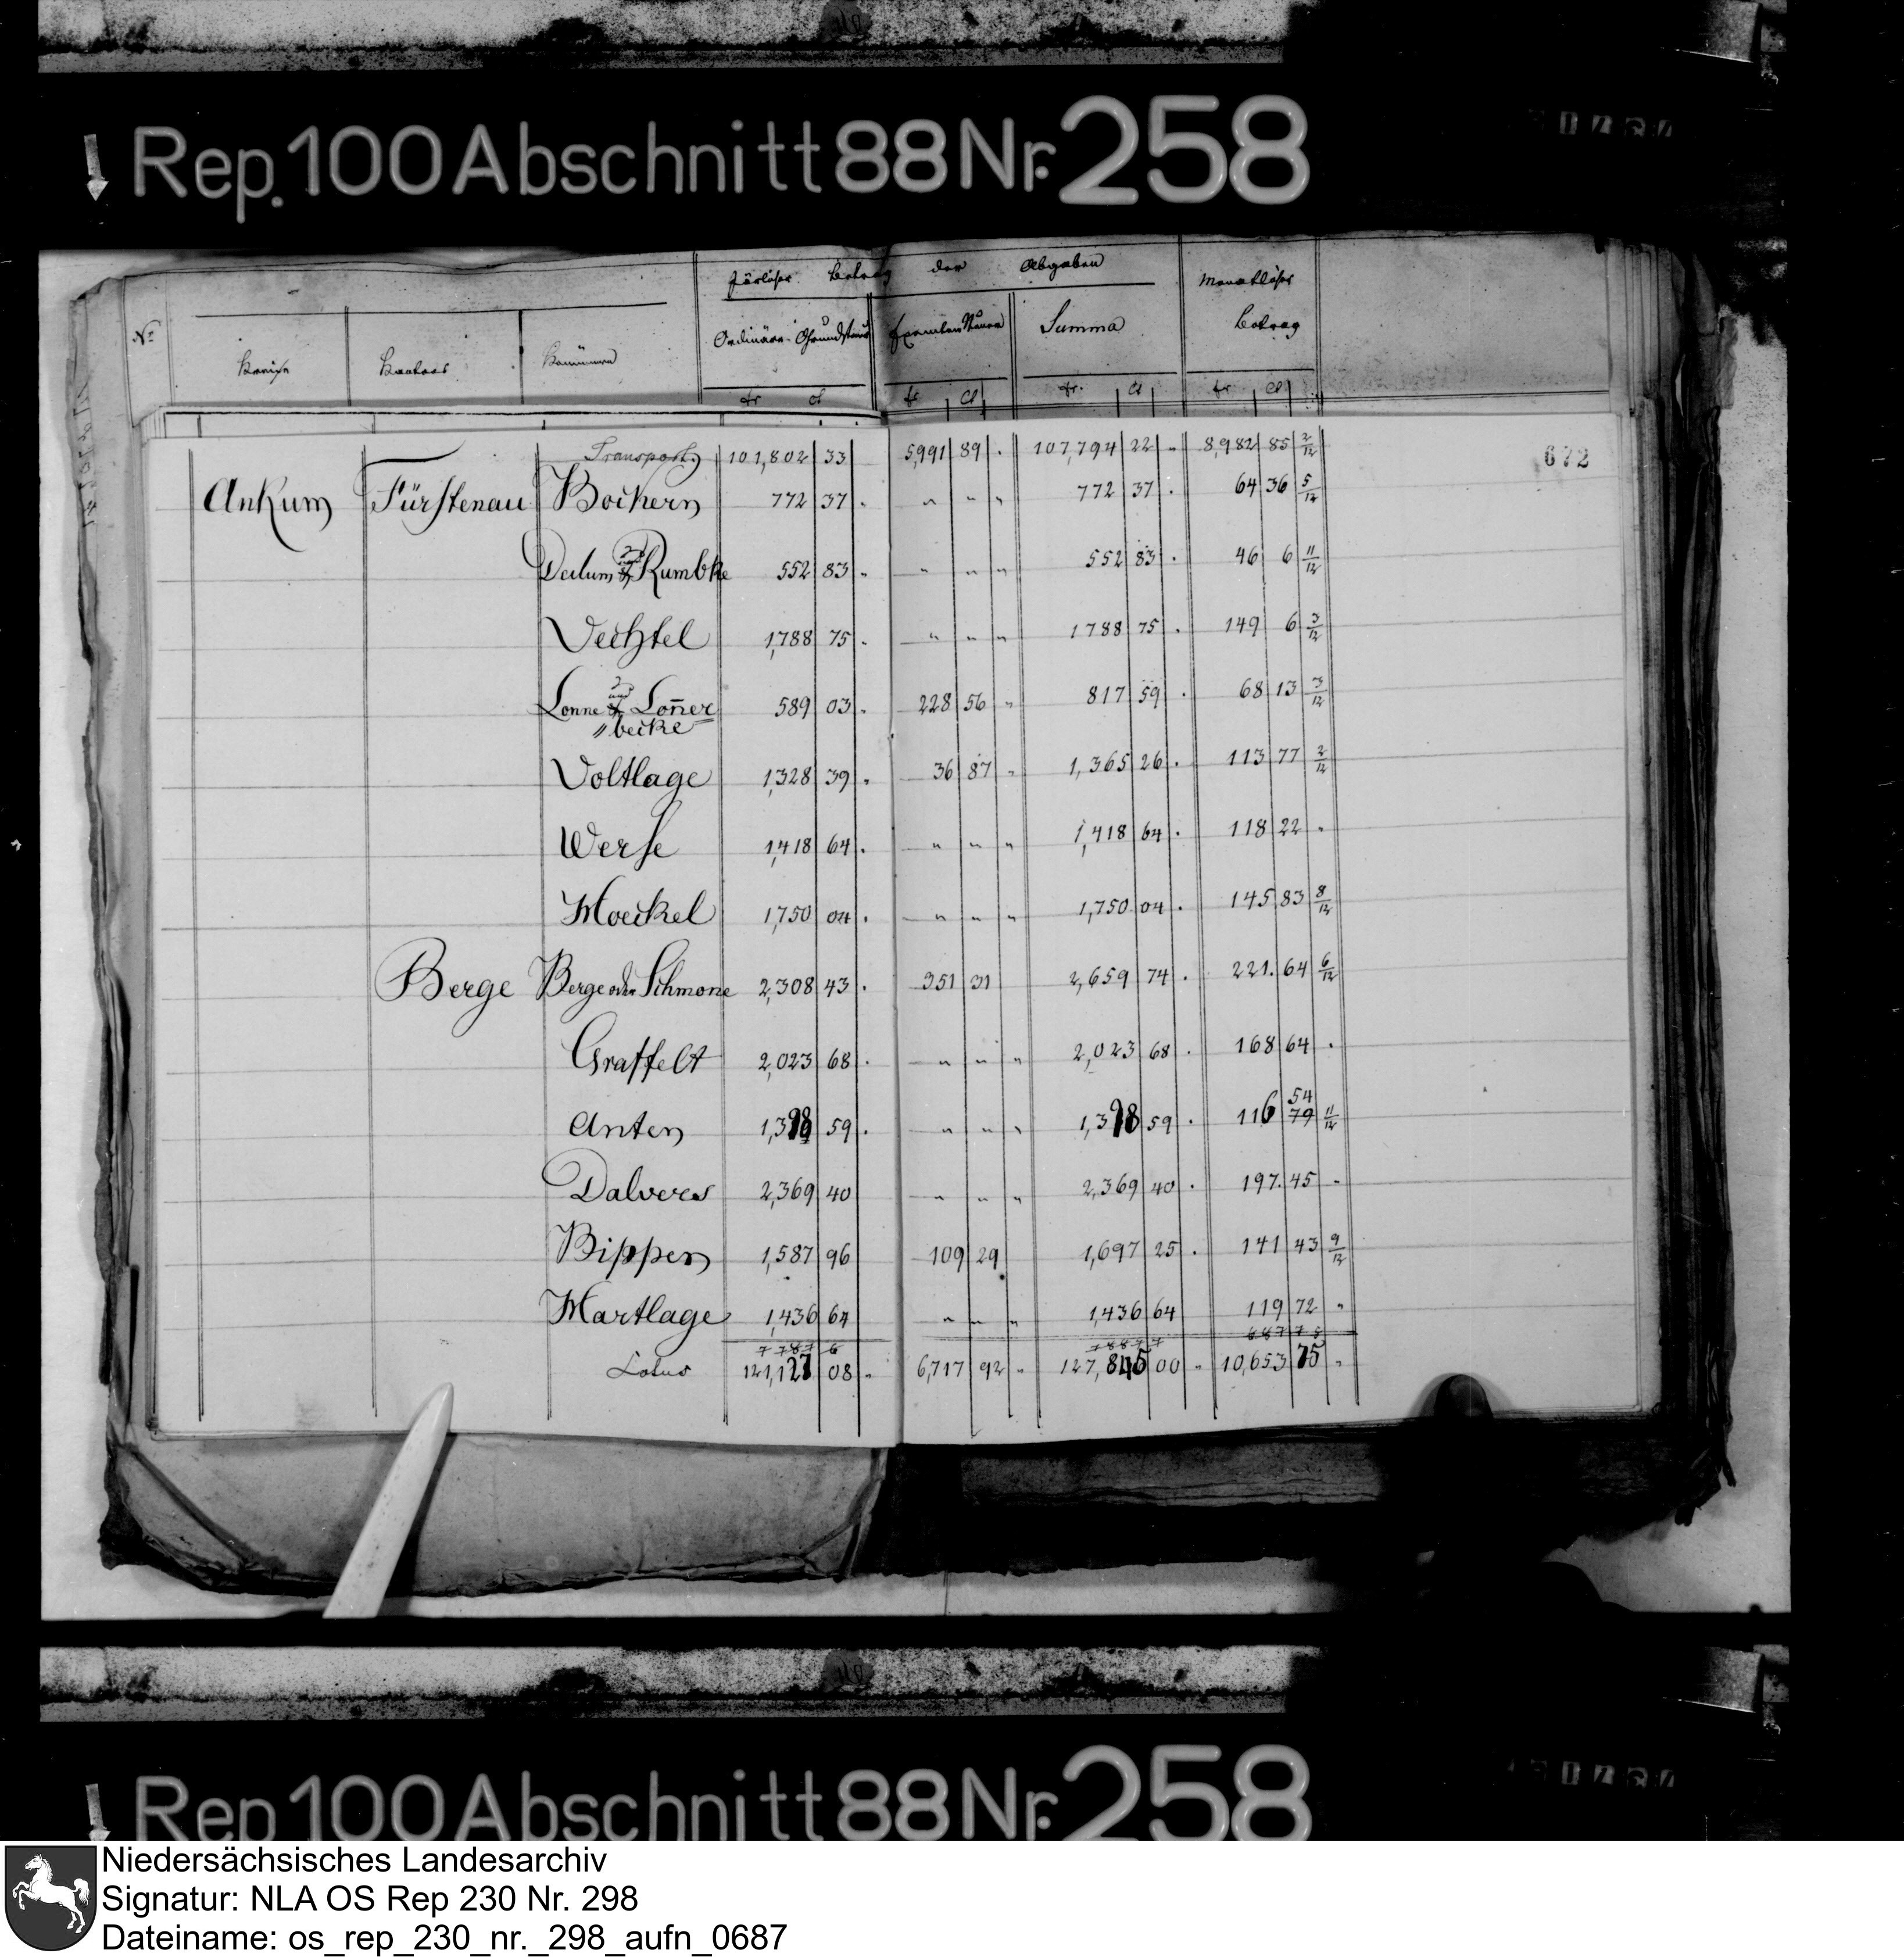 Rep. 100 Abschnitt 88 Nr. 258
Järlicher Betrag der Abgaben Monatlicher Betrag
No Kreise Kantons Ordinäre Grundsteuer Exemten Steuer Summa
fr Ct fr Ct fr. Ct fr. Ct
672
Transport 101,802 33 5,991 89 . 107,794 22 " 8,982 85 2/12
Ankum Fürstenau Bockern 772 37 . " " " 772 37 . 64 36 5/12
Deilum und Rumbke 552 83 " " " " 552 83 . 46 6 11/12
Vechtel 1,788 75 . " " " 1788 75 . 149 6 3/12
Lonne und Loñer 589 03 . 228 56 " 817 59 . 68 13 3/12
"becke
Voltlage 1,328 39 . 36 87 " 1,365 26 . 113 77 2/12
Werse 1,418 64 . " " " 1,418 64 . 118 22 "
Moeckel 1,750 04 . " " " 1,750 04 . 145 83 8/12
Berge Berge oder Schmone 2,308 43 . 351 31 2,659 74 . 221. 64 6/12
Graffelt 2,023 68 . " " " 2,023 68 . 168 64 .
Anten 1,398 59 . " " " 1,398 59 . 116 54 79 11/12
Dalvers 2,369 40 " " " 2,369 40 . 197. 45 "
Bippen 1,587 96 109 29 1,697 25 . 141 43 9/12
Martlage 1,436 64 " " " 1,436 64 119 72 "
Latus 121,127 08 " 6,717 92 " 127,845 00 " 10,653 75 "
Rep 100 Abschnitt 88 Nr. 258
Niedersächsisches Landesarchiv
Signatur: NLA OS Rep 230 Nr. 298
Dateiname: os_rep_230_nr._298_aufn_0687